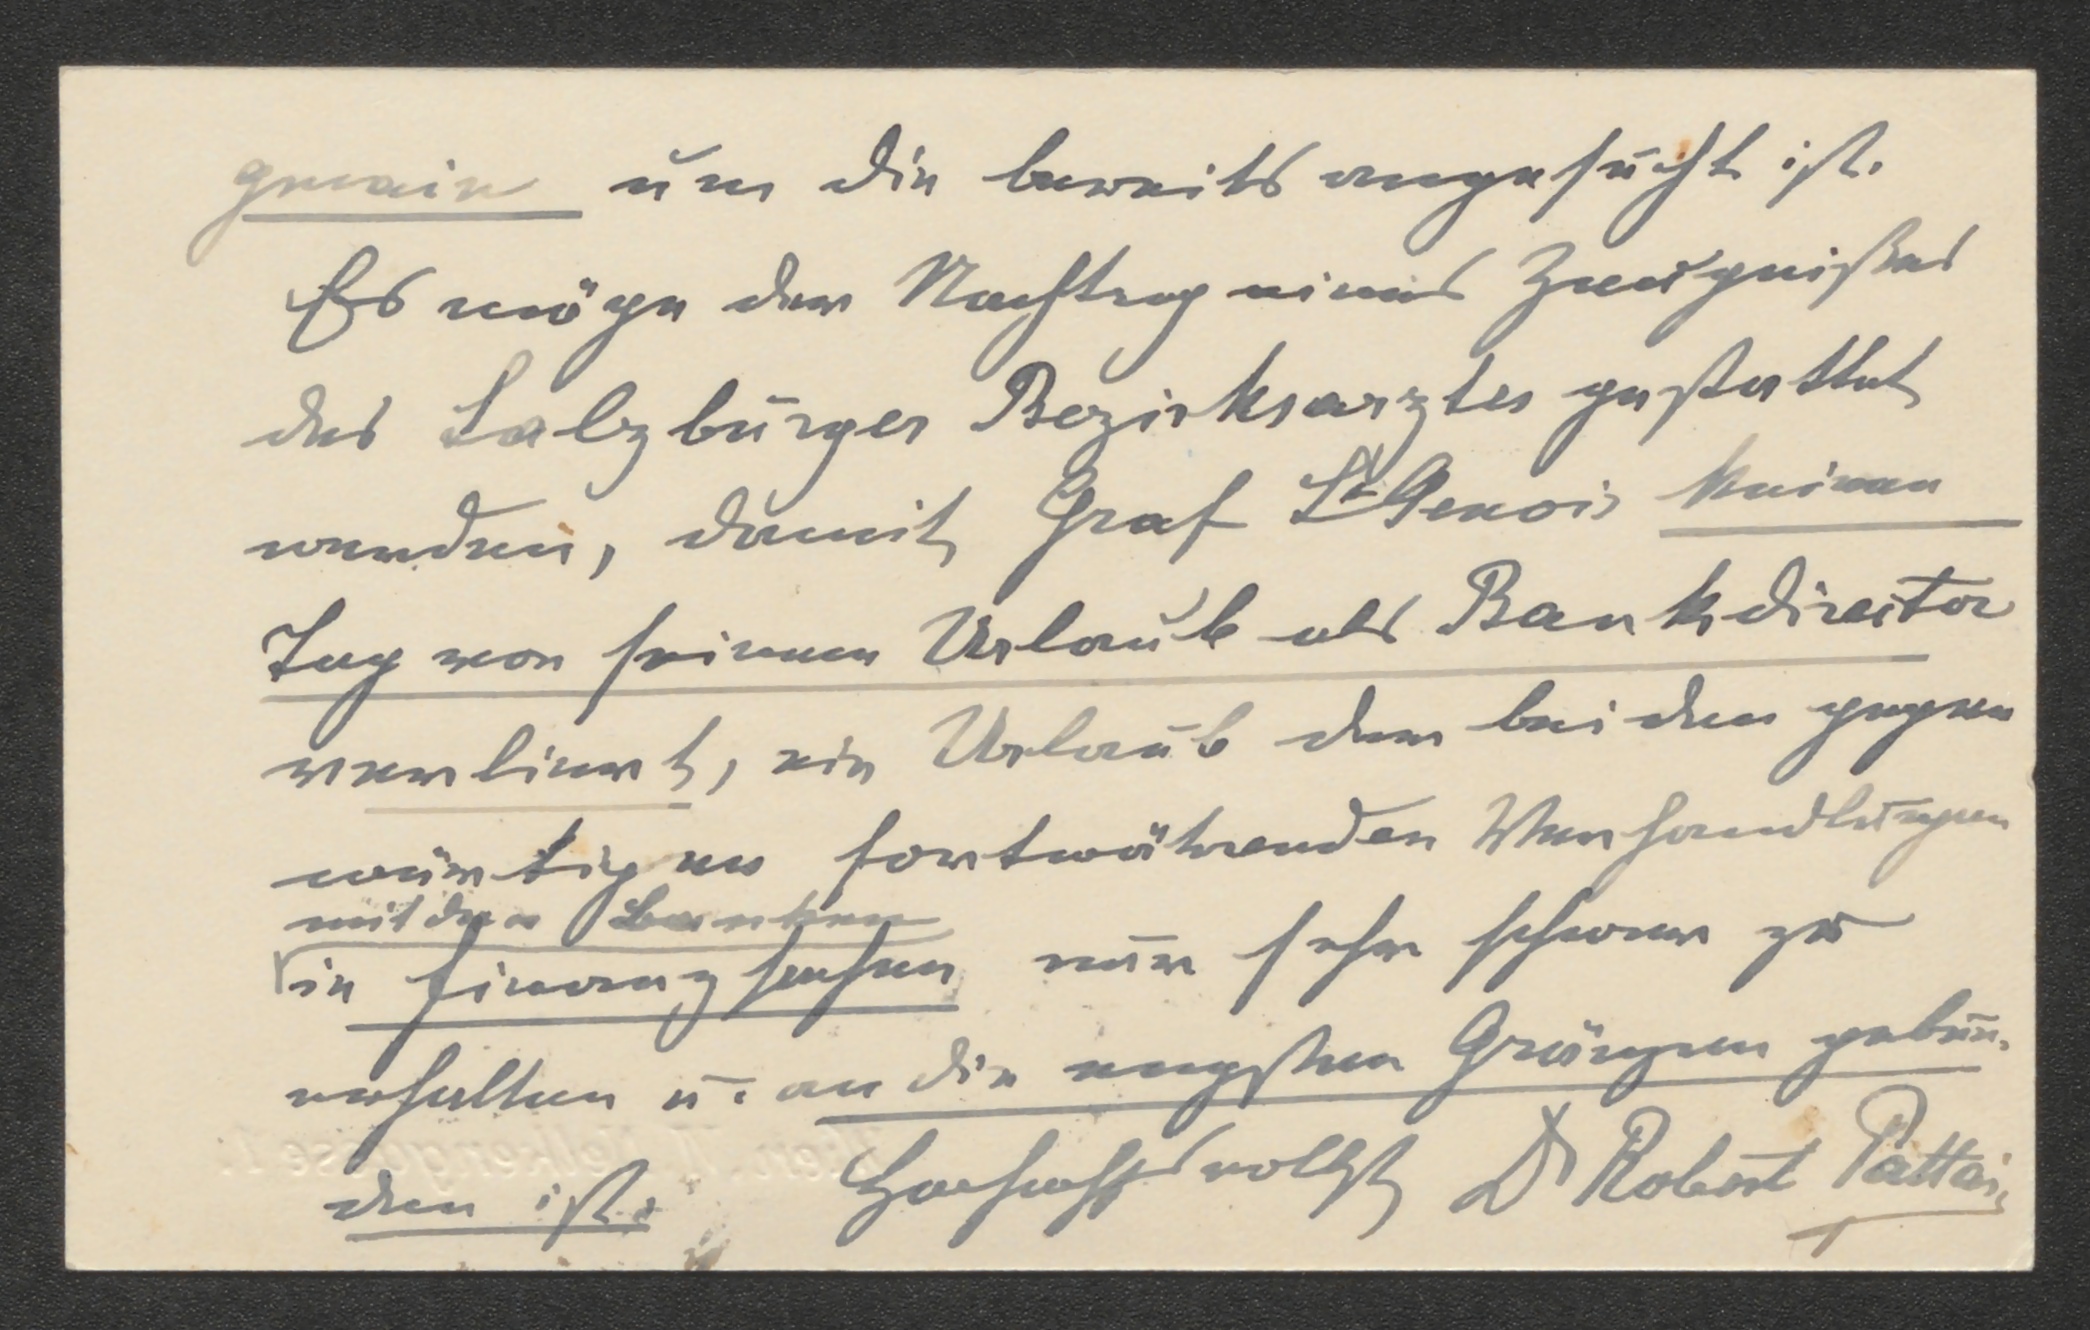 gmain um die bereits angesucht ist.
Es möge der Nachtrag eines Zeugnißes
des Salzburger Bezirksarztes gestattet
werden, damit Graf St Genois keinen
Tag von seinem Urlaub als Bankdirector
verliert, ein Urlaub der bei den gegen
wärtigen fortwährenden Verhandlungen
mit den Banken
in Finanzsachen nur sehr schwer zu
erhalten u. an die engsten Gränzen gebun-
den ist. Hochachtsvollst Dr Robert Pattai
Wien, VI, Nelkengasse 1.